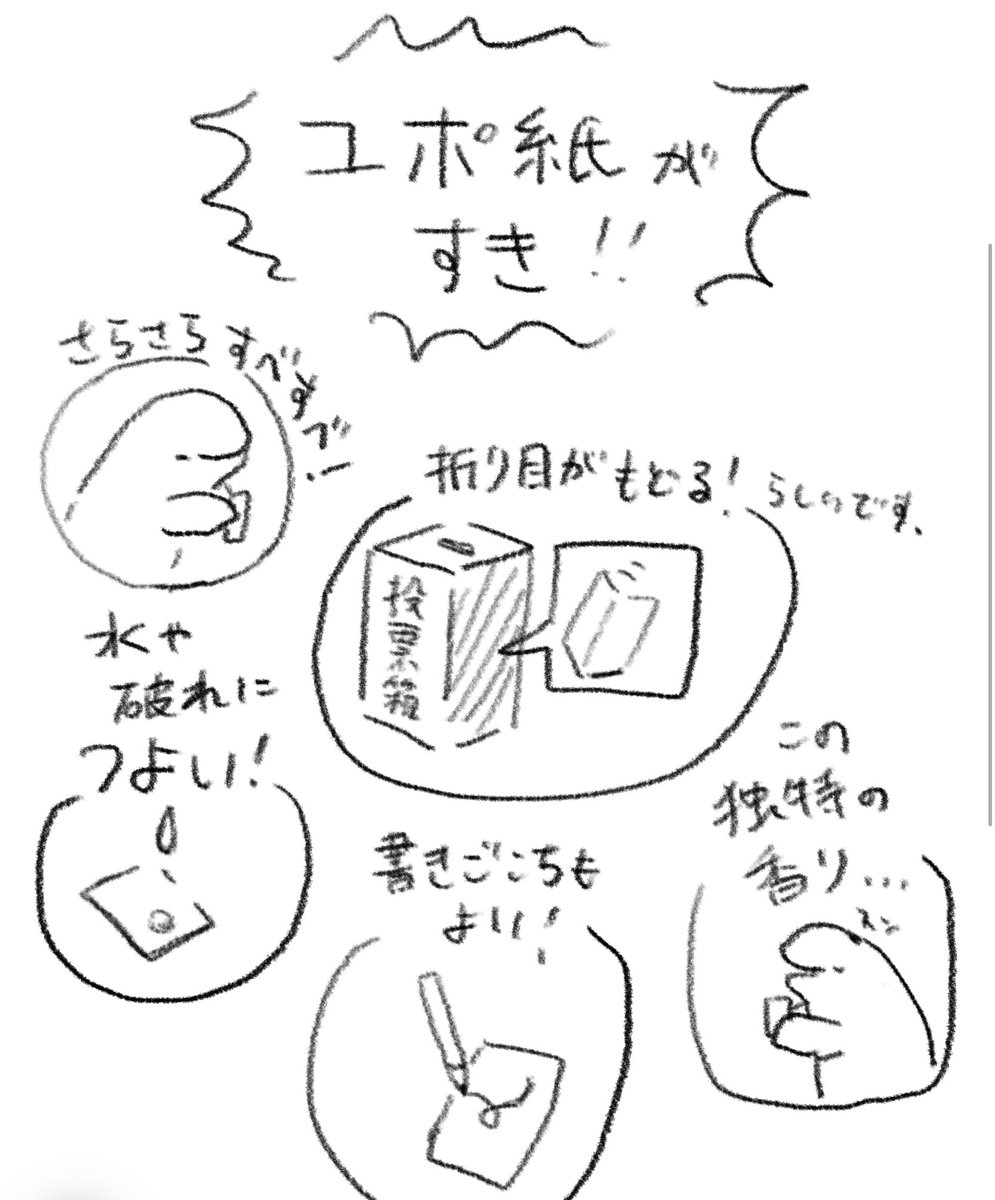 ユポ紙が
すき!!
さらさらすべすべー
折り目がもどる!らしいです.
投票箱
水や
破れに
つよい!
この
独特の
香り…
スン
書きごこちも
よい!